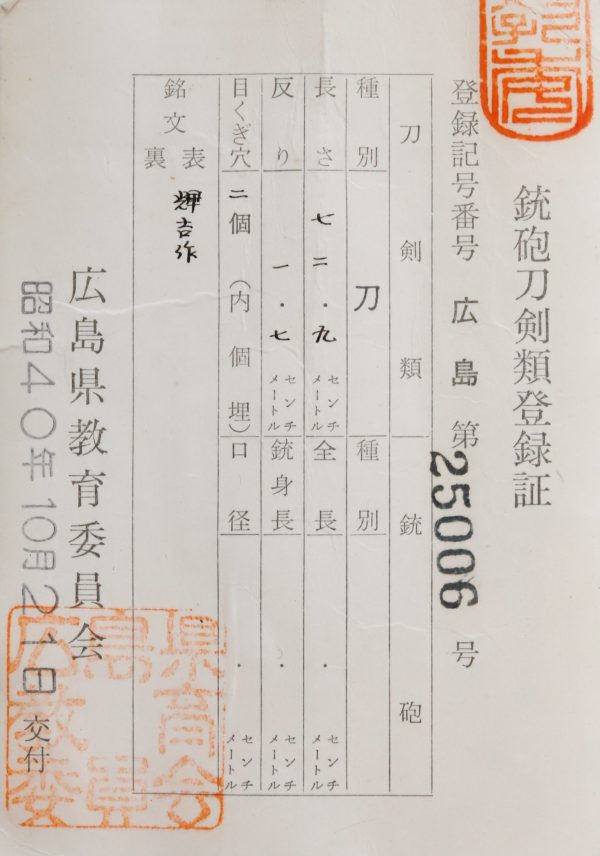 銃砲刀剣類登録証
登録記号番号 広島 第 25006 号
刀剣類
銃砲
種別 刀
種別
長さ 七二・九 センチメートル
全長 ・ センチメートル
反り 一・七 センチメートル
銃身長 ・ センチメートル
目くぎ穴 二個 (内 個埋)
口径 ・ センチメートル
銘文
表 輝吉作
裏
広島県教育委員会
昭和40年10月21日 交付
広島県
教育
委員会